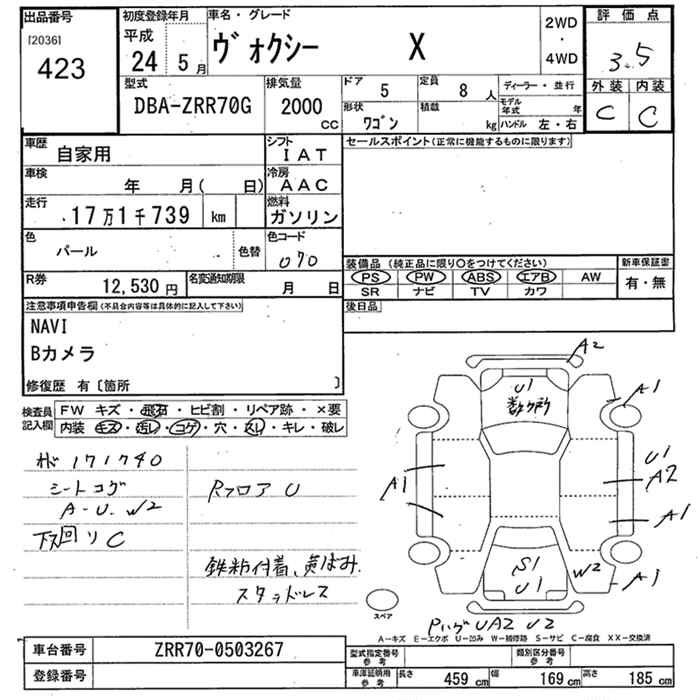 出品番号
[2036]
423
初度登録年月
平成
24 5月
車名・グレード
ヴォクシー X
2WD
・
4WD
評価点
3.5
外装 内装
C C
型式
DBA-ZRR70G
排気量
2000
cc
ドア 5
定員 8人
形状 ワゴン
積載 kg
ディーラー・並行
モデル年式 年
ハンドル 左・右
車歴
自家用
シフト
IAT
車検
年 月( 日)
冷房
AAC
走行
17万1千739 km
燃料
ガソリン
色
パール
色替
色コード
070
R券
12,530円
名変通知期限
月 日
セールスポイント(正常に機能するものに限ります)
装備品 (純正品に限り○をつけてください)
PS PW ABS エアB AW
SR ナビ TV カワ
新車保証書
有・無
後日品
注意事項申告欄(不具合内容等は具体的に記入して下さい)
NAVI
Bカメラ
修復歴 有〔箇所 〕
検査員記入欄
FW キズ・飛石・ヒビ割・リペア跡・×要
内装 キズ・汚レ・コゲ・穴・スレ・キレ・破レ
171740
シートコゲ
A-U-W2
下廻りC
Rフロア U
鉄粉付着、黄ばみ
スタッドレス
A2
U1
数ヶ所
A1
U1
A2
A1
A1
A1
S1
U1
W2
RハゲUA2 U2
スペア
A-キズ E-エクボ U-凹み W-補修跡 S-サビ C-腐食 XX-交換済
車台番号
ZRR70-0503267
登録番号
型式指定番号
参考
類別区分番号
参考
車庫証明用
参考
長さ 459 cm 幅 169 cm 高さ 185 cm